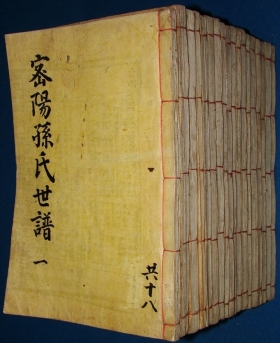 密陽孫氏世譜 一
共十八